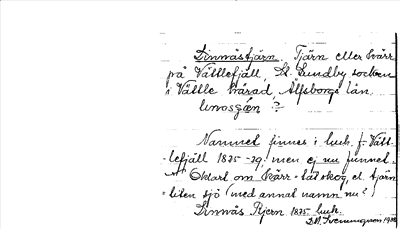 Dinnåstjärn. Tjärn eller kärr
på Vättlefjäll, St. Lundby socken
i Vättle härad, Älfsborgs län
?
Namnet finnes i huh. f. Vätt-
lefjäll 1875-29. men ej nu funnet.
Oklart om kärr - låt skog, el. tjärn
= liten sjö (med annat namn nu?)
Dinnås Kjern 1875 huh.